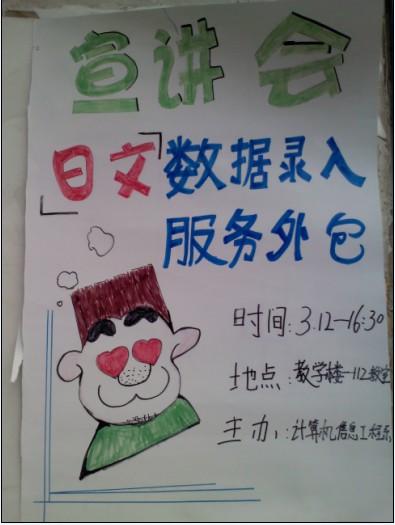 宣讲会
「日文」数据录入
服务外包
时间:3.12—16:30
地点:教学楼—112教室
主办:计算机信息工程系